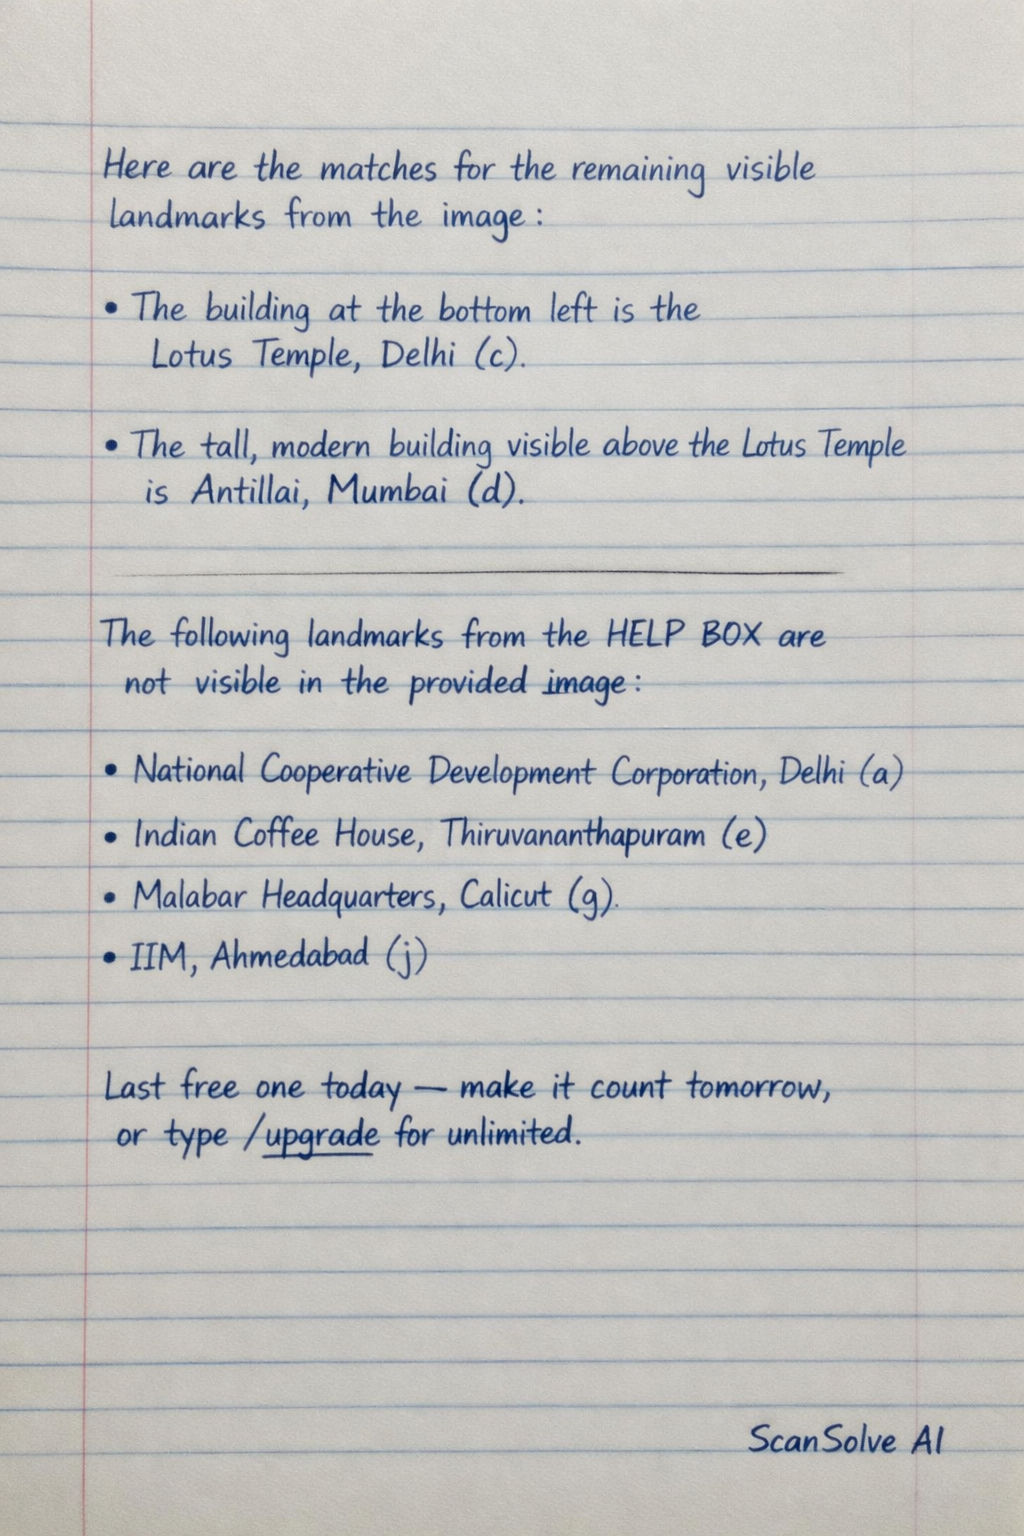 Here are the matches for the remaining visible
landmarks from the image:
• The building at the bottom left is the
Lotus Temple, Delhi (c).
• The tall, modern building visible above the Lotus Temple
is Antillai, Mumbai (d).
The following landmarks from the HELP BOX are
not visible in the provided image:
• National Cooperative Development Corporation, Delhi (a)
• Indian Coffee House, Thiruvananthapuram (e)
• Malabar Headquarters, Calicut (g).
• IIM, Ahmedabad (j)
Last free one today — make it count tomorrow,
or type /upgrade for unlimited.
ScanSolve AI